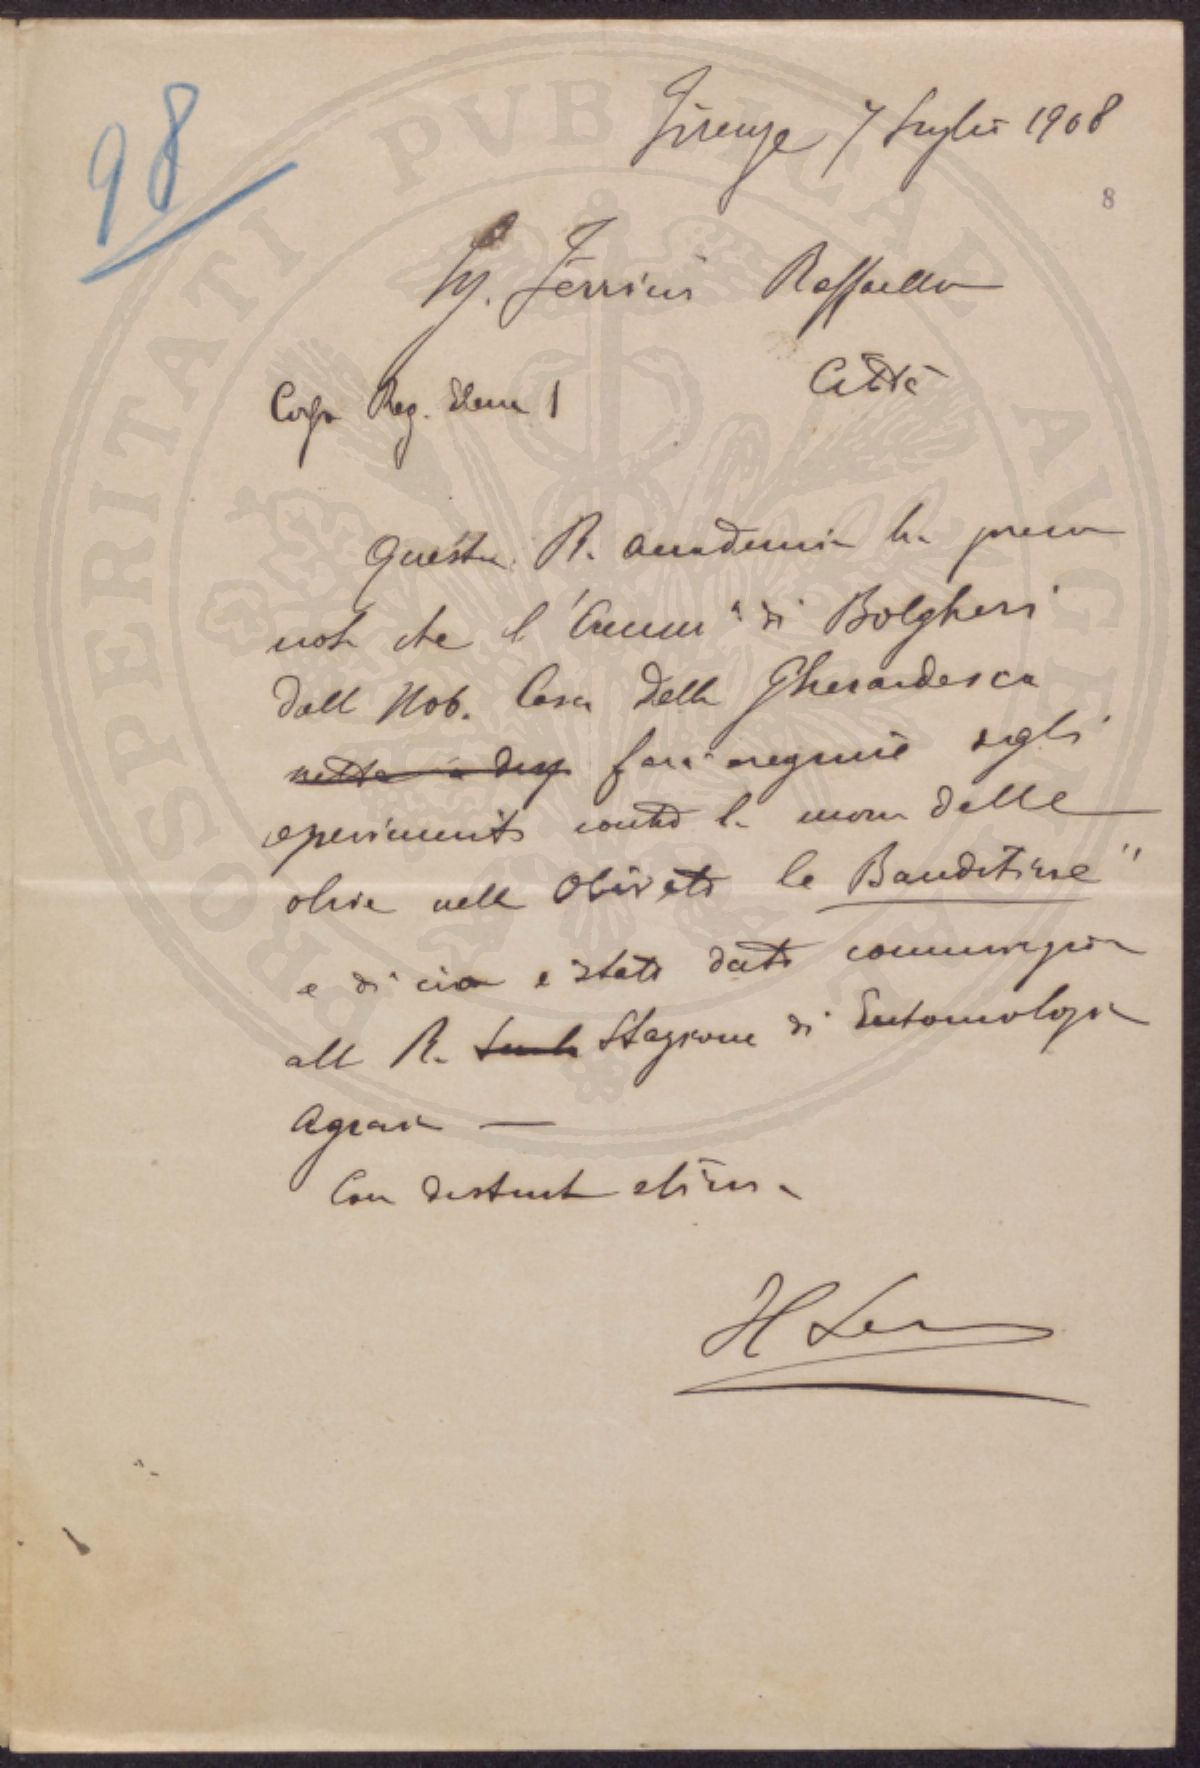 98
Firenze 7 Luglio 1908
8
Sig. Ferrini Raffaello
Città
Corso Reg. Elena 1
Questa R. Accademia ha preso
nota che l' di Bolgheri
dell Nob. Casa della Gherardesca
farà eseguire negli
esperimenti contro la mosca delle
olive nell Oliveto le Banditine"
e di ciò è stato dato comunicazione
all R. Stazione di Entomologia
Agraria —
Con distinta stima
PROSPERITATI PVBLICAE AVGENDAE